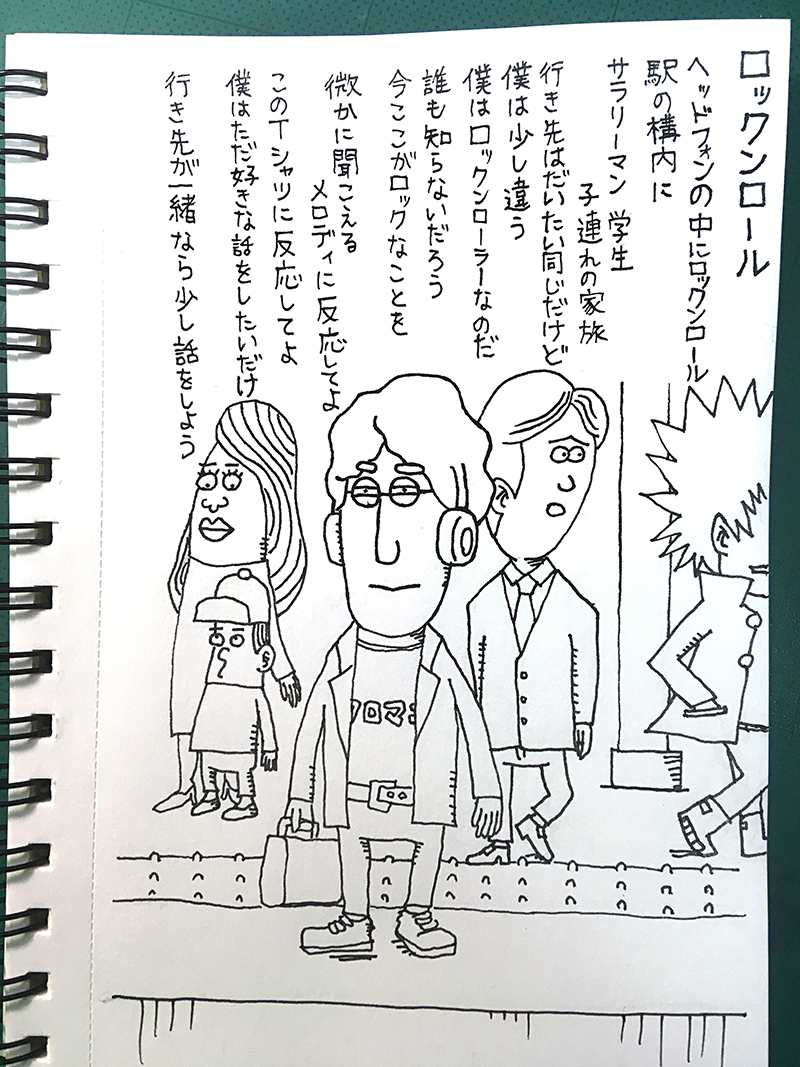 ロックンロール
ヘッドフォンの中にロックンロール
駅の構内に
サラリーマン 学生
子連れの家族
行き先はだいたい同じだけど
僕は少し違う
僕はロックンローラーなのだ
誰も知らないだろう
今ここがロックなことを
微かに聞こえる
メロディに反応してよ
このTシャツに反応してよ
僕はただ好きな話をしたいだけ
行き先が一緒なら少し話をしよう
クロマニ